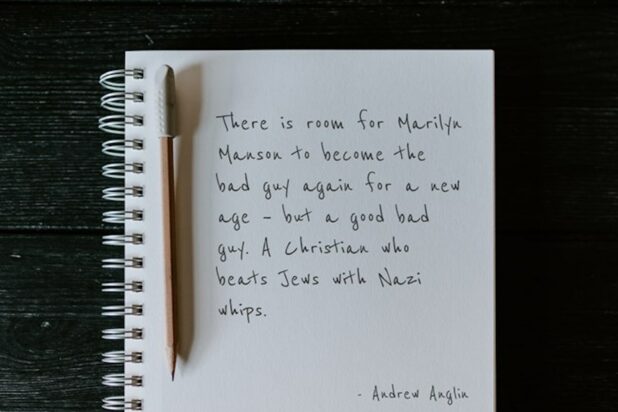 There is room for Marilyn
Manson to become the
bad guy again for a new
age - but a good bad
guy. A Christian who
beats Jews with Nazi
whips.
- Andrew Anglin